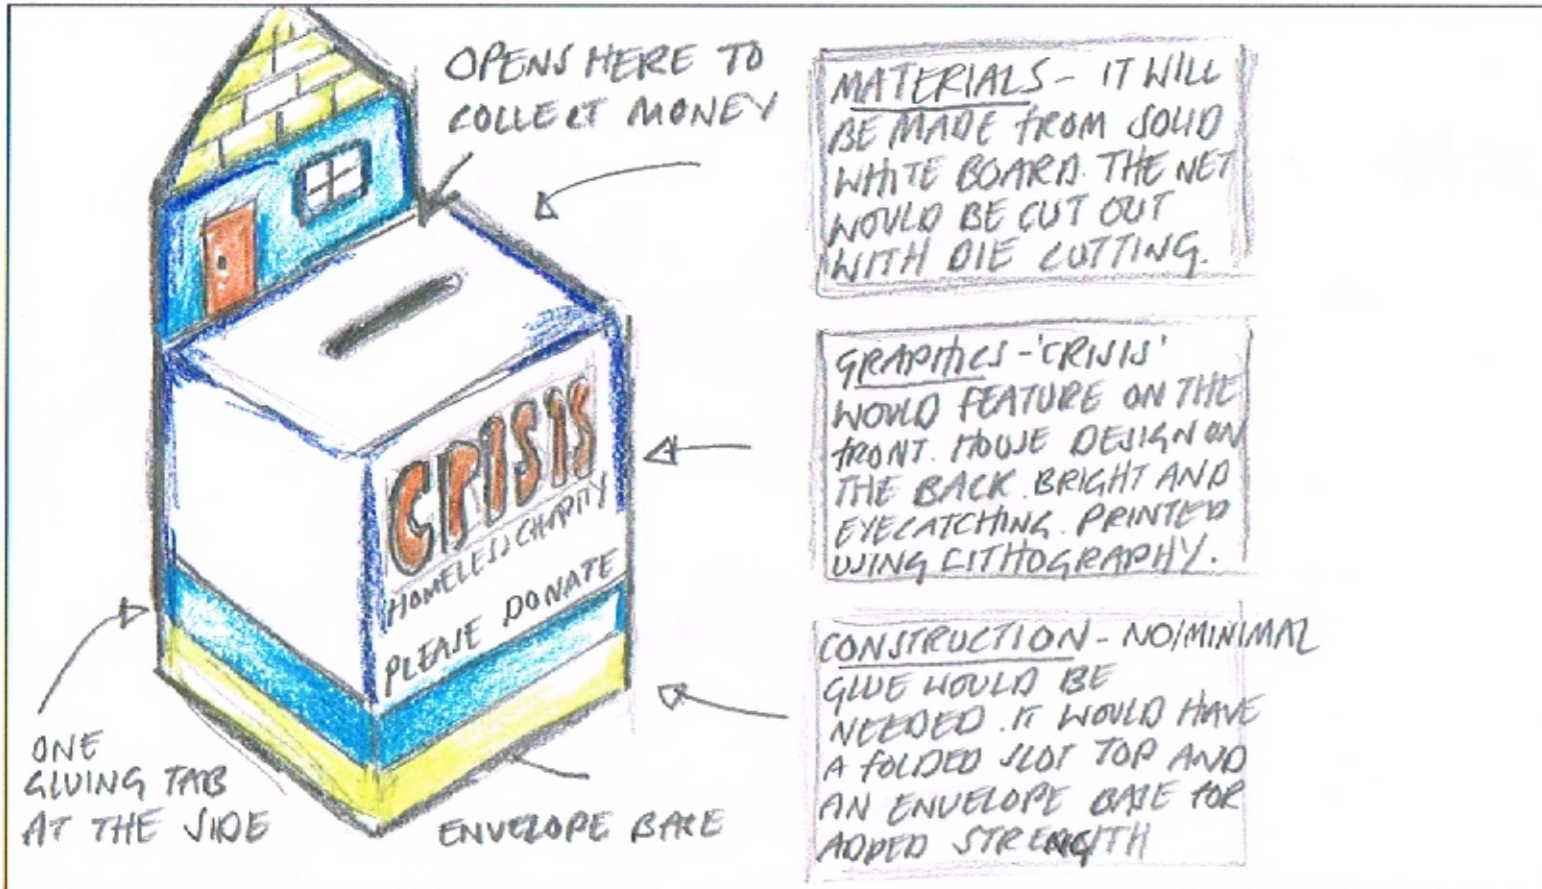 OPENS HERE TO
COLLECT MONEY
CRISIS
HOMELESS CHARITY
PLEASE DONATE
ONE
GLUING TAB
AT THE SIDE
ENVELOPE BASE
MATERIALS - IT WILL
BE MADE FROM SOLID
WHITE BOARD. THE NET
WOULD BE CUT OUT
WITH DIE CUTTING.
GRAPHICS - 'CRISIS'
WOULD FEATURE ON THE
FRONT. HOUSE DESIGN ON
THE BACK. BRIGHT AND
EYECATCHING. PRINTED
USING LITHOGRAPHY.
CONSTRUCTION - NO/MINIMAL
GLUE WOULD BE
NEEDED. IT WOULD HAVE
A FOLDED SLOT TOP AND
AN ENVELOPE BASE FOR
ADDED STRENGTH